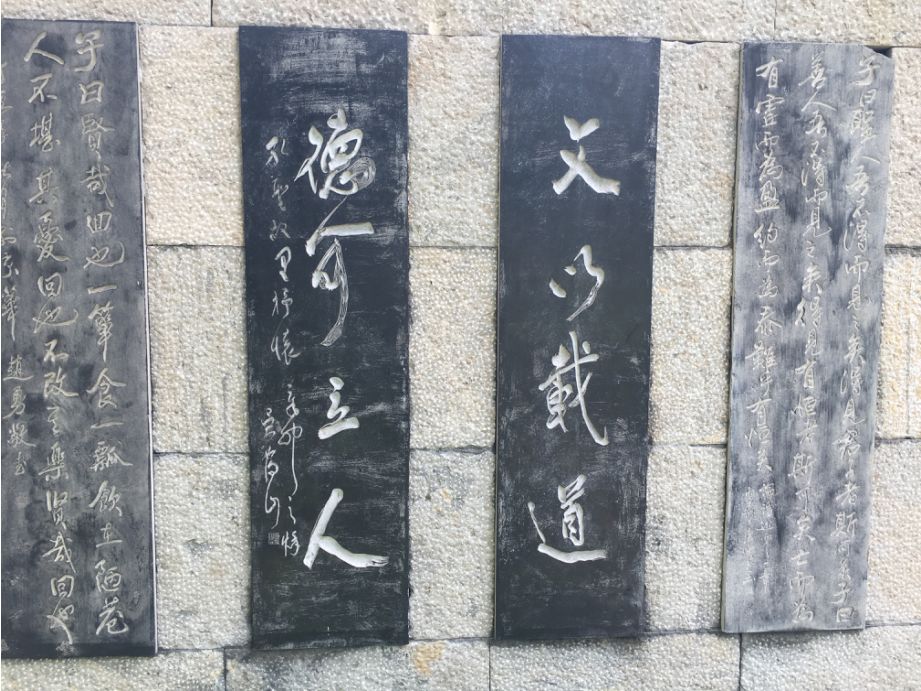 子曰聖人吾不得而見之矣得見君子者斯可矣子曰
善人吾不得而見之矣得見有恆者斯可矣亡而為
有虛而為盈約而為泰難乎有恆矣
文以載道
德可立人
孔聖故里抒懷
子曰賢哉回也一簞食一瓢飲在陋巷
人不堪其憂回也不改其樂賢哉回也
趙勇敬書